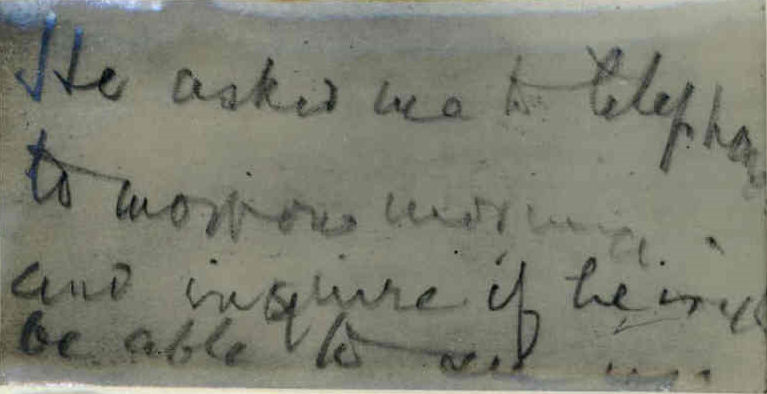 He asked me to telephone
tomorrow morning
and inquire if he
be able to see me